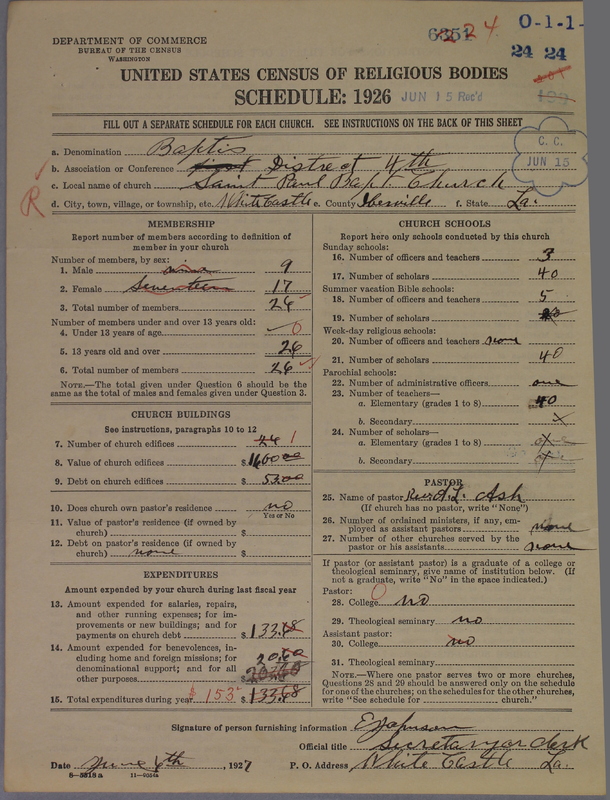 6351 24 O-1-1-
24 24
DEPARTMENT OF COMMERCE
BUREAU OF THE CENSUS
WASHINGTON
UNITED STATES CENSUS OF RELIGIOUS BODIES
SCHEDULE: 1926 JUN 15 Rec'd
FILL OUT A SEPARATE SCHEDULE FOR EACH CHURCH. SEE INSTRUCTIONS ON THE BACK OF THIS SHEET
C. C.
JUN 15
a. Denomination Baptis
b. Association or Conference first District 4th
c. Local name of church Saint Paul Bapt Church
d. City, town, village, or township, etc. White Castle e. County Iberville f. State La.
R
MEMBERSHIP
Report number of members according to definition of
member in your church
Number of members, by sex:
1. Male nine 9
2. Female Seventeen 17
3. Total number of members 26
Number of members under and over 13 years old:
4. Under 13 years of age 0
5. 13 years old and over 26
6. Total number of members 26
NOTE.—The total given under Question 6 should be the
same as the total of males and females given under Question 3.
CHURCH BUILDINGS
See instructions, paragraphs 10 to 12
7. Number of church edifices 1
8. Value of church edifices $1600.00
9. Debt on church edifices $53.00
10. Does church own pastor's residence no
Yes or No
11. Value of pastor's residence (if owned by
church) $
12. Debt on pastor's residence (if owned by
church) none $
EXPENDITURES
Amount expended by your church during last fiscal year
13. Amount expended for salaries, repairs,
and other running expenses; for im-
provements or new buildings; and for
payments on church debt $133.68
14. Amount expended for benevolences, in-
cluding home and foreign missions; for
denominational support; and for all
other purposes 20.60
15. Total expenditures during year $153 $133.68
CHURCH SCHOOLS
Report here only schools conducted by this church
Sunday schools:
16. Number of officers and teachers 3
17. Number of scholars 40
Summer vacation Bible schools:
18. Number of officers and teachers 5
19. Number of scholars
Week-day religious schools:
20. Number of officers and teachers none
21. Number of scholars 40
Parochial schools:
22. Number of administrative officers one
23. Number of teachers—
a. Elementary (grades 1 to 8) 40
b. Secondary x
24. Number of scholars—
a. Elementary (grades 1 to 8)
b. Secondary
PASTOR
25. Name of pastor Rev A. L. Ash
(If church has no pastor, write "None")
26. Number of ordained ministers, if any, em-
ployed as assistant pastors none
27. Number of other churches served by the
pastor or his assistants none
If pastor (or assistant pastor) is a graduate of a college or
theological seminary, give name of institution below. (If
not a graduate, write "No" in the space indicated.)
Pastor:
28. College 0 no
29. Theological seminary no
Assistant pastor:
30. College no
31. Theological seminary
NOTE.—Where one pastor serves two or more churches,
Questions 28 and 29 should be answered only on the schedule
for one of the churches; on the schedules for the other churches,
write "See schedule for church."
Signature of person furnishing information E Johnson
Official title Secretary or clerk
Date June 4th, 1927 P. O. Address White Castle La.
8—5318 a 11—9104a